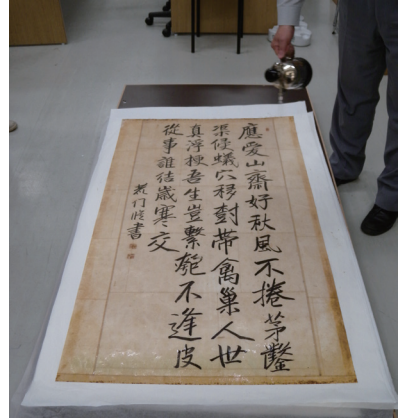 應愛山齋好秋風不捲茅鑿
渠侵蟻穴移樹帶禽巢人世
真浮梗吾生豈繫匏不逢皮
從事誰結歲寒交
書